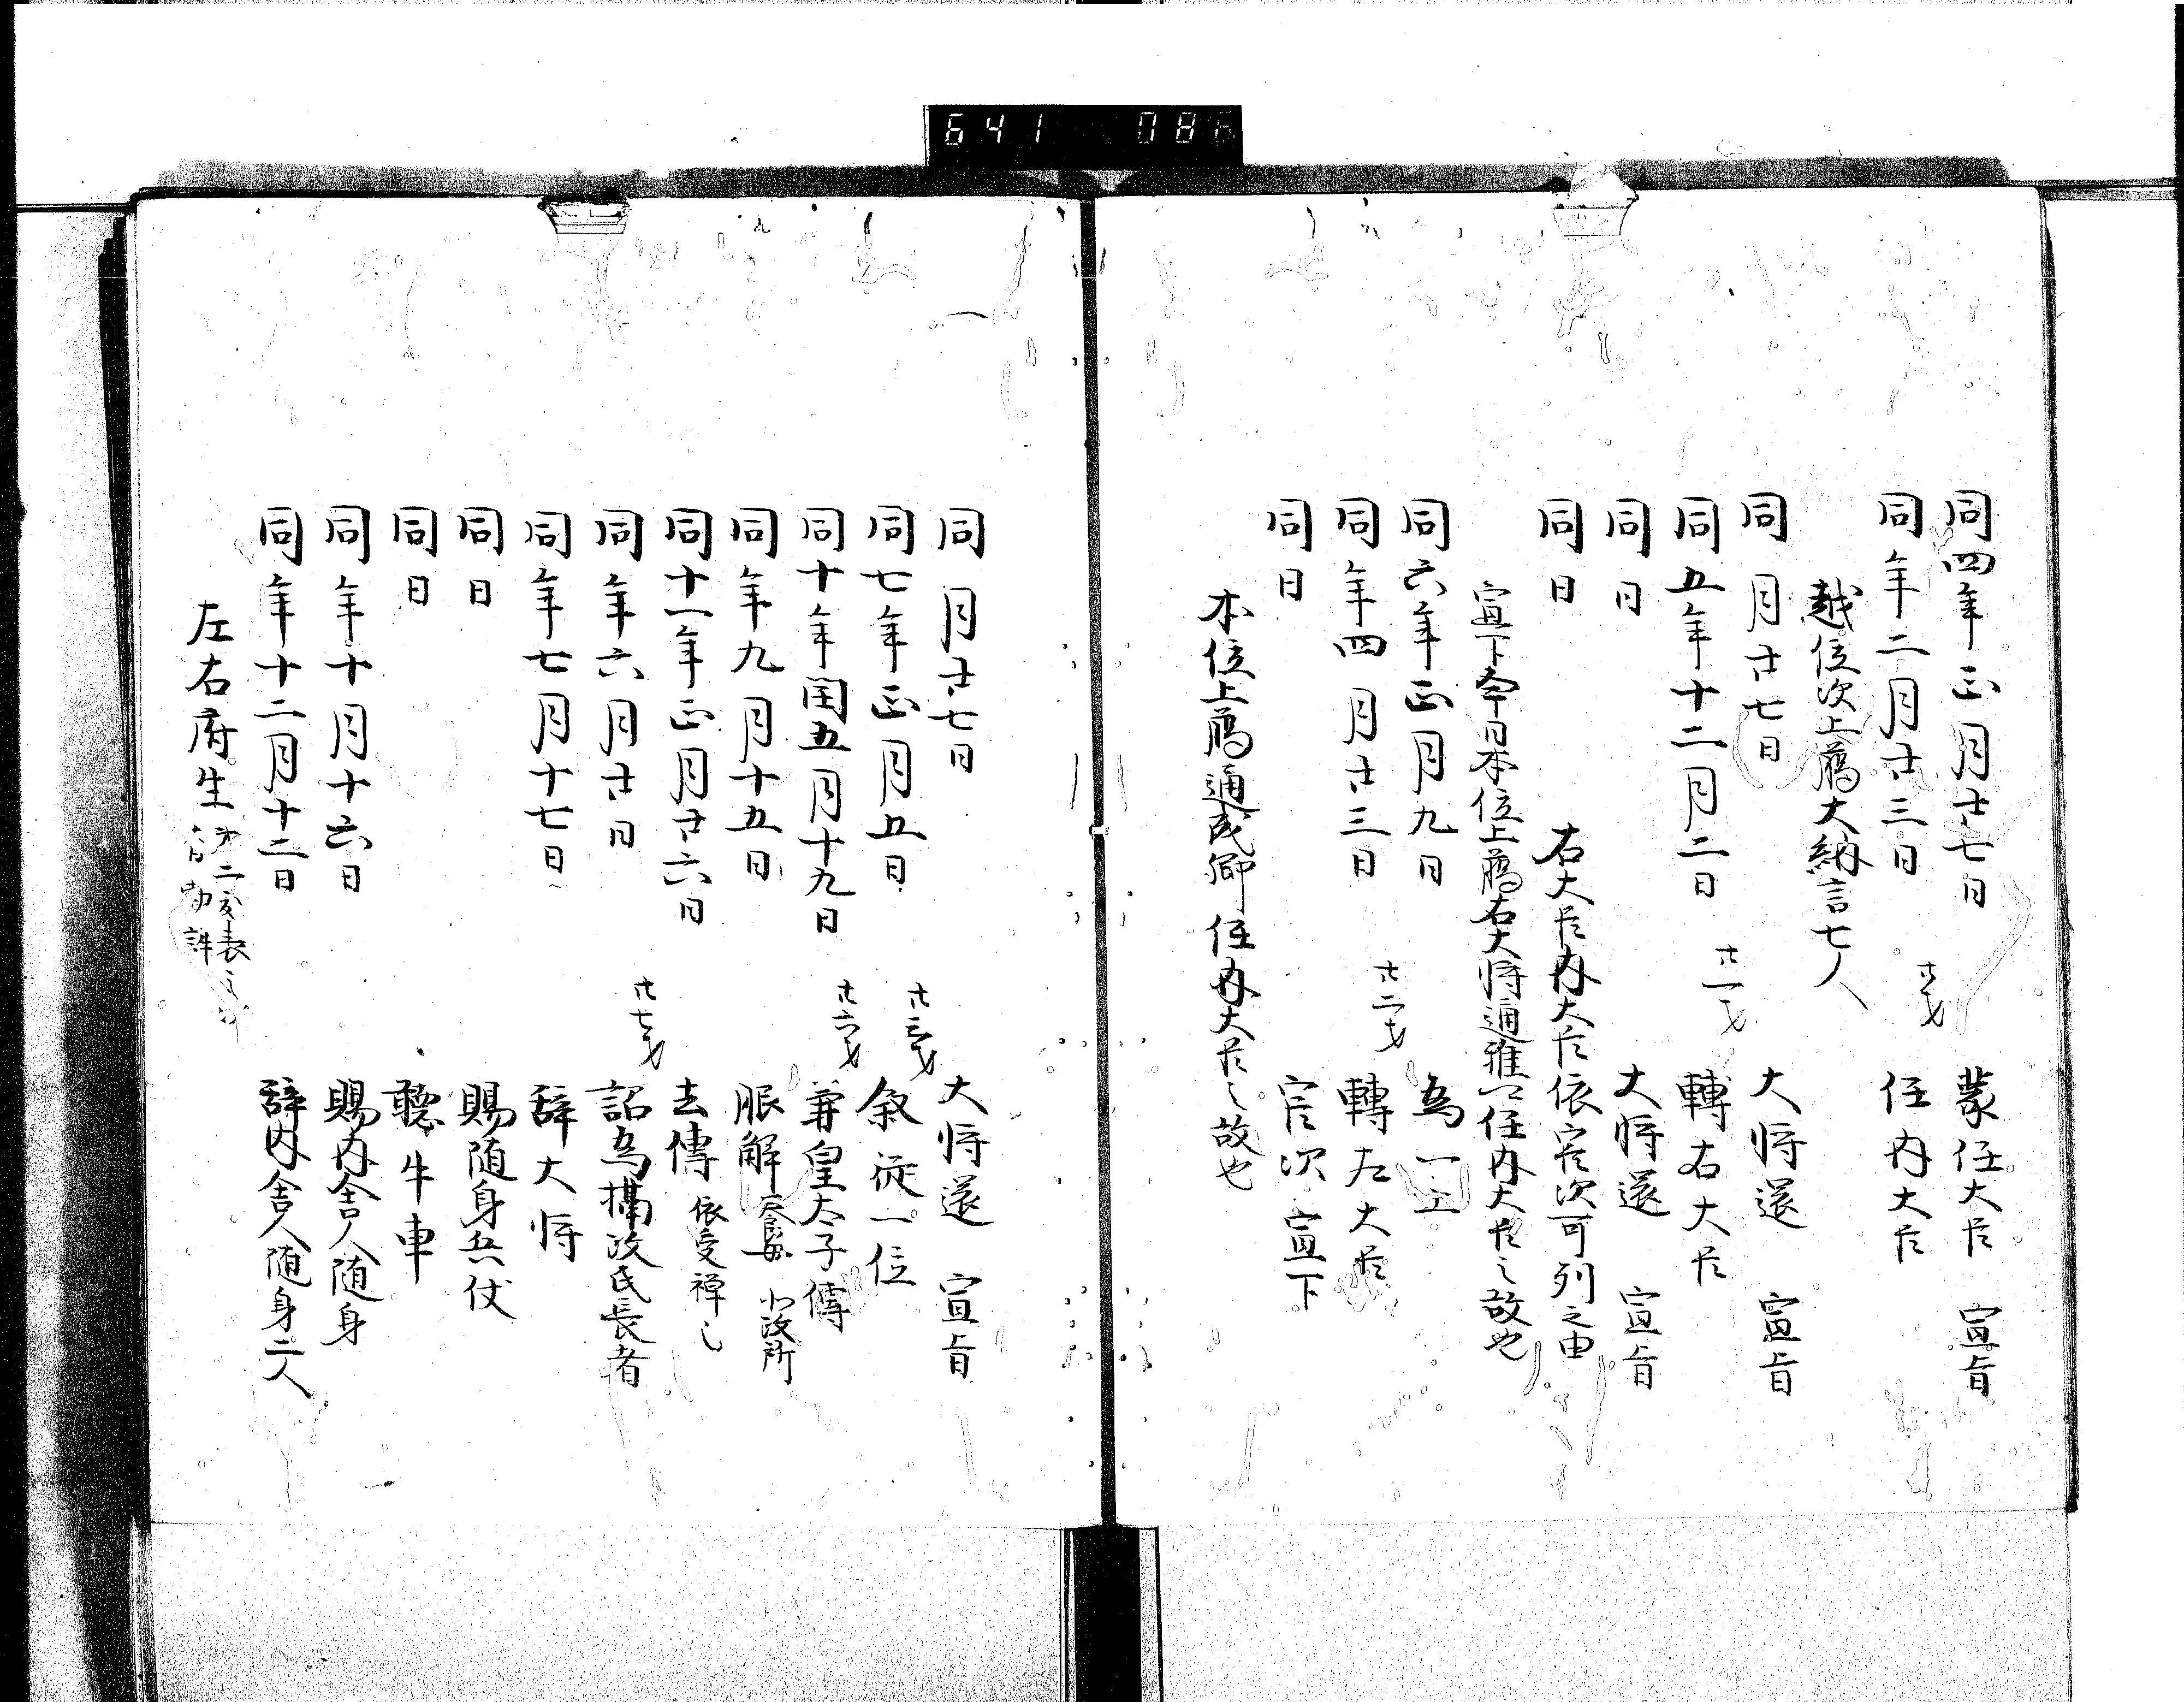 641 086
同四年正月廿七日 蒙任大臣 宣旨
同年二月廿三日 廿才 任内大臣
越位次上臈大納言七人
同月廿七日 大将還 宣旨
同五年十二月二日 廿一才 轉右大臣
同日 大将還 宣旨
同日 右大臣内大臣依官次可列之由
宣下今日本位上臈右大将通雅公任内大臣之故也
同六年正月九日 為一上
同年四月廿三日 廿二才 轉左大臣
同日 官次 宣下
本位上臈通成卿任内大臣之故也
同月廿七日 大将還 宣旨
同七年正月五日 廿三才 叙従一位
同十年閏五月十九日 廿六才 兼皇太子傅
同年九月十五日 服解 養母 北政所
同十一年正月廿六日 去傅 依受禅也
同年六月廿日 廿七才 詔為攝政氏長者
同年七月十七日 辞大将
同日 賜随身兵仗
同日 聴牛車
同年十月十六日 賜内舎人随身
同年十二月十二日 辞内舎人随身二人
左右府生 第二度表 勅許